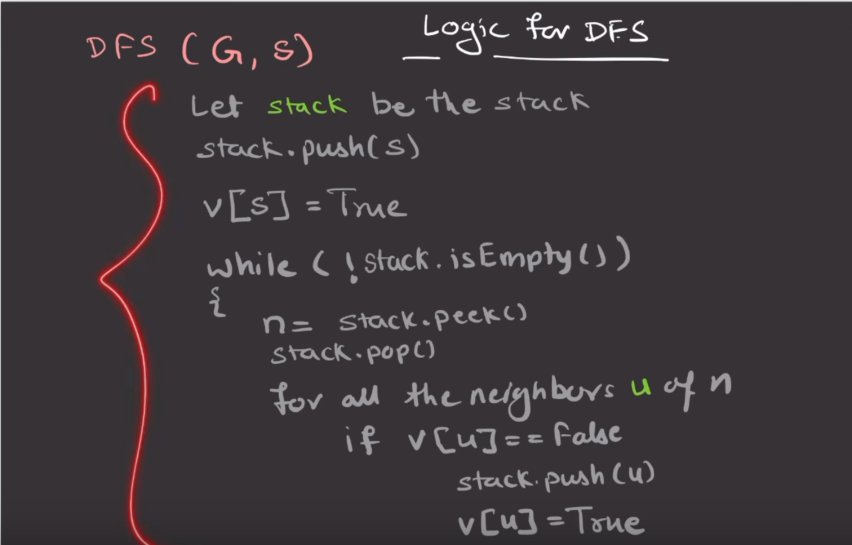 Logic for DFS
DFS (G, S)
Let stack be the stack
stack.push(s)
v[s] = True
while ( ! stack.isEmpty() )
{
n = stack.peek()
stack.pop()
for all the neighbors u of n
if v[u] == False
stack.push(u)
v[u] = True